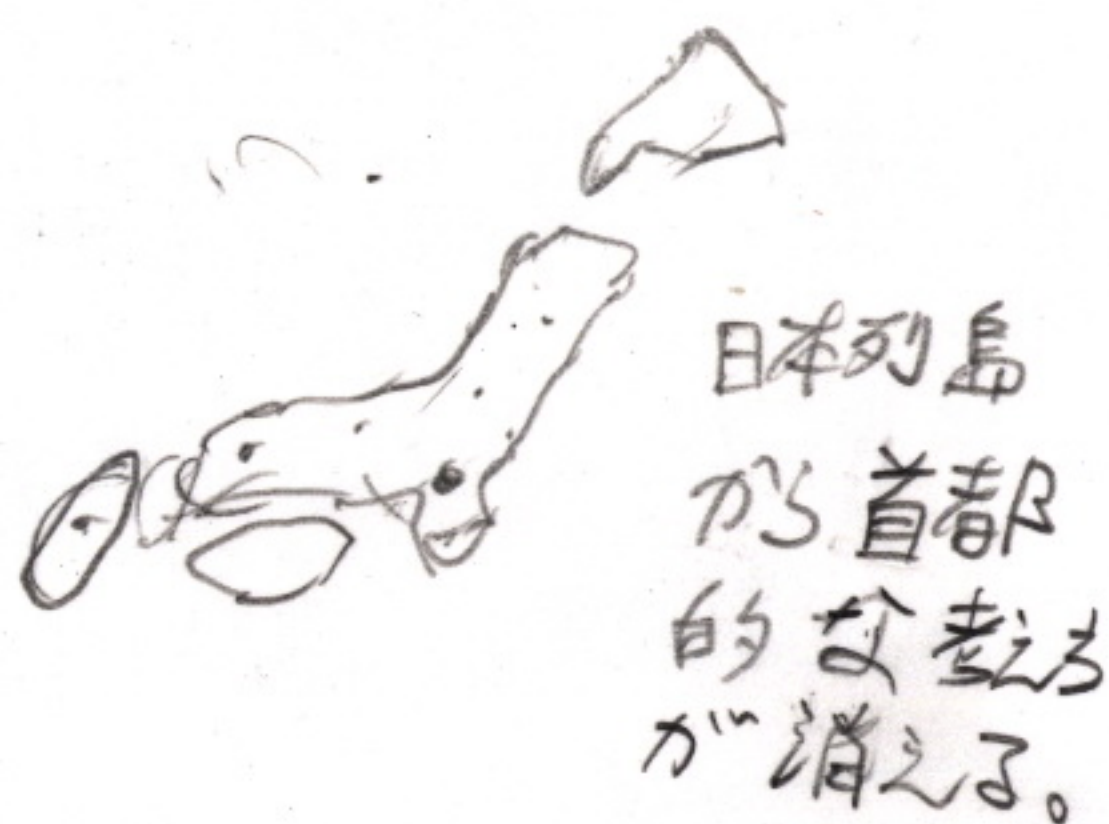 日本列島
から首都
的な考えち
が消える。